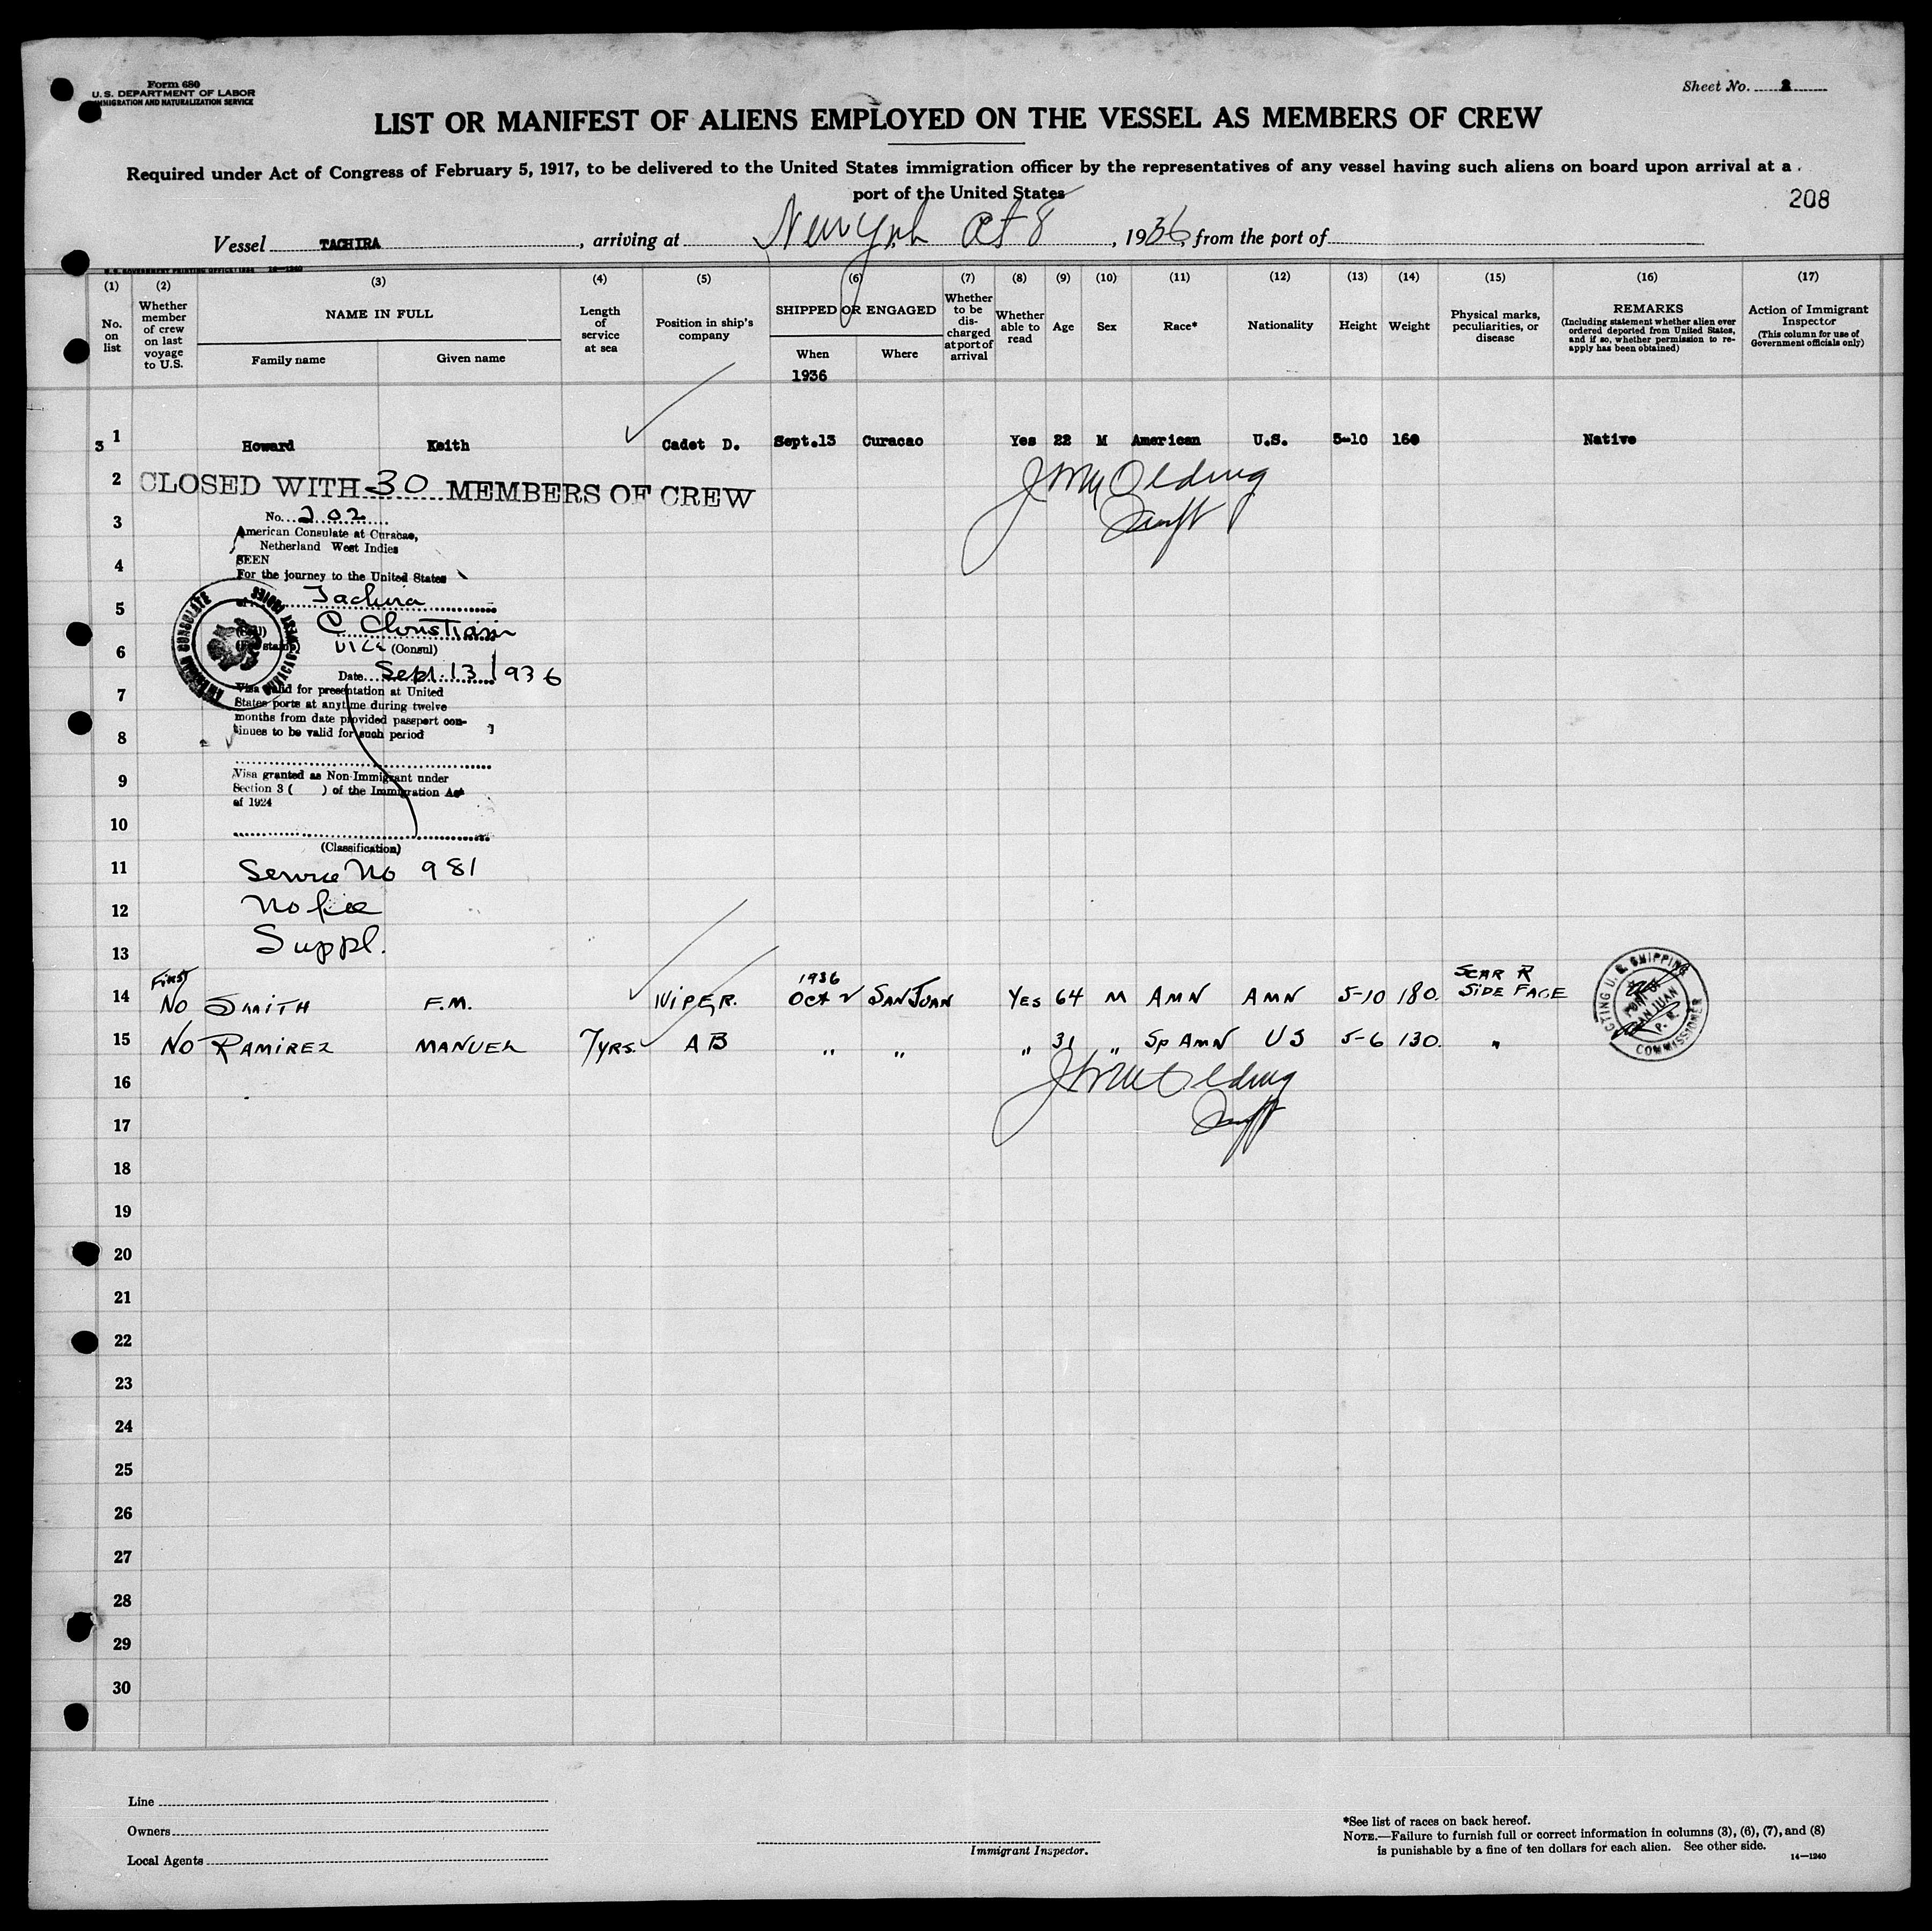 Form 680
U.S. DEPARTMENT OF LABOR
IMMIGRATION AND NATURALIZATION SERVICE
Sheet No. 2
LIST OR MANIFEST OF ALIENS EMPLOYED ON THE VESSEL AS MEMBERS OF CREW
Required under Act of Congress of February 5, 1917, to be delivered to the United States immigration officer by the representatives of any vessel having such aliens on board upon arrival at a
port of the United States
208
Vessel TACHIRA, arriving at New York Oct 8, 1936, from the port of
U.S. GOVERNMENT PRINTING OFFICE
(1) (2) (3) (4) (5) (6) (7) (8) (9) (10) (11) (12) (13) (14) (15) (16) (17)
No. on list
Whether member of crew on last voyage to U.S.
NAME IN FULL
Family name
Given name
Length of service at sea
Position in ship's company
SHIPPED OR ENGAGED
When
Where
1936
Whether to be discharged at port of arrival
Whether able to read
Age
Sex
Race*
Nationality
Height
Weight
Physical marks, peculiarities, or disease
REMARKS
(Including statement whether alien ever ordered deported from United States, and if so, whether permission to reapply has been obtained)
Action of Immigrant Inspector
(This column for use of Government officials only)
3 1 Howard Keith Cadet D. Sept.13 Curacao Yes 22 M American U.S. 5-10 160 Native
2 CLOSED WITH 30 MEMBERS OF CREW
No. 202
3
American Consulate at Curacao,
Netherland West Indies
SEEN
4
For the journey to the United States
5
Tachira
C Christian
6
Vice (Consul)
Date Sept. 13 1936
7
Visa valid for presentation at United
States ports at anytime during twelve
months from date provided passport con-
tinues to be valid for such period
8
9
Visa granted as Non-Immigrant under
Section 3 ( ) of the Immigration Act
of 1924
10
(Classification)
11 Service No 981
12 No fee
13 Suppl.
First
14 No SMITH F.M. WIPER. 1936 OCT 2 SAN JUAN YES 64 M AMN AMN 5-10 180. SCAR R SIDE FACE
ACTING U.S. SHIPPING COMMISSIONER
PORT OF SAN JUAN P.R.
15 No RAMIREZ MANUEL 7 YRS. AB " " " 31 " Sp AMN US 5-6 130. "
16
17
18
19
20
21
22
23
24
25
26
27
28
29
30
Line
Owners
Local Agents
Immigrant Inspector.
*See list of races on back hereof.
NOTE.—Failure to furnish full or correct information in columns (3), (6), (7), and (8)
is punishable by a fine of ten dollars for each alien. See other side.
14—1240